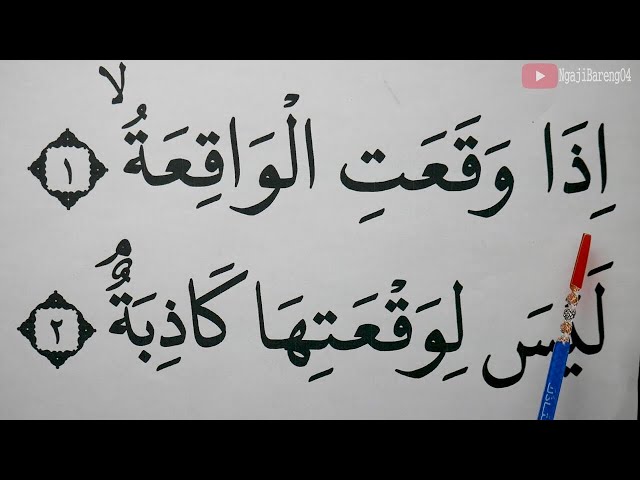 NgajiBareng04
اِذَا وَقَعَتِ الْوَاقِعَةُ ۙ ١
لَيْسَ لِوَقْعَتِهَا كَاذِبَةٌ ۘ ٢